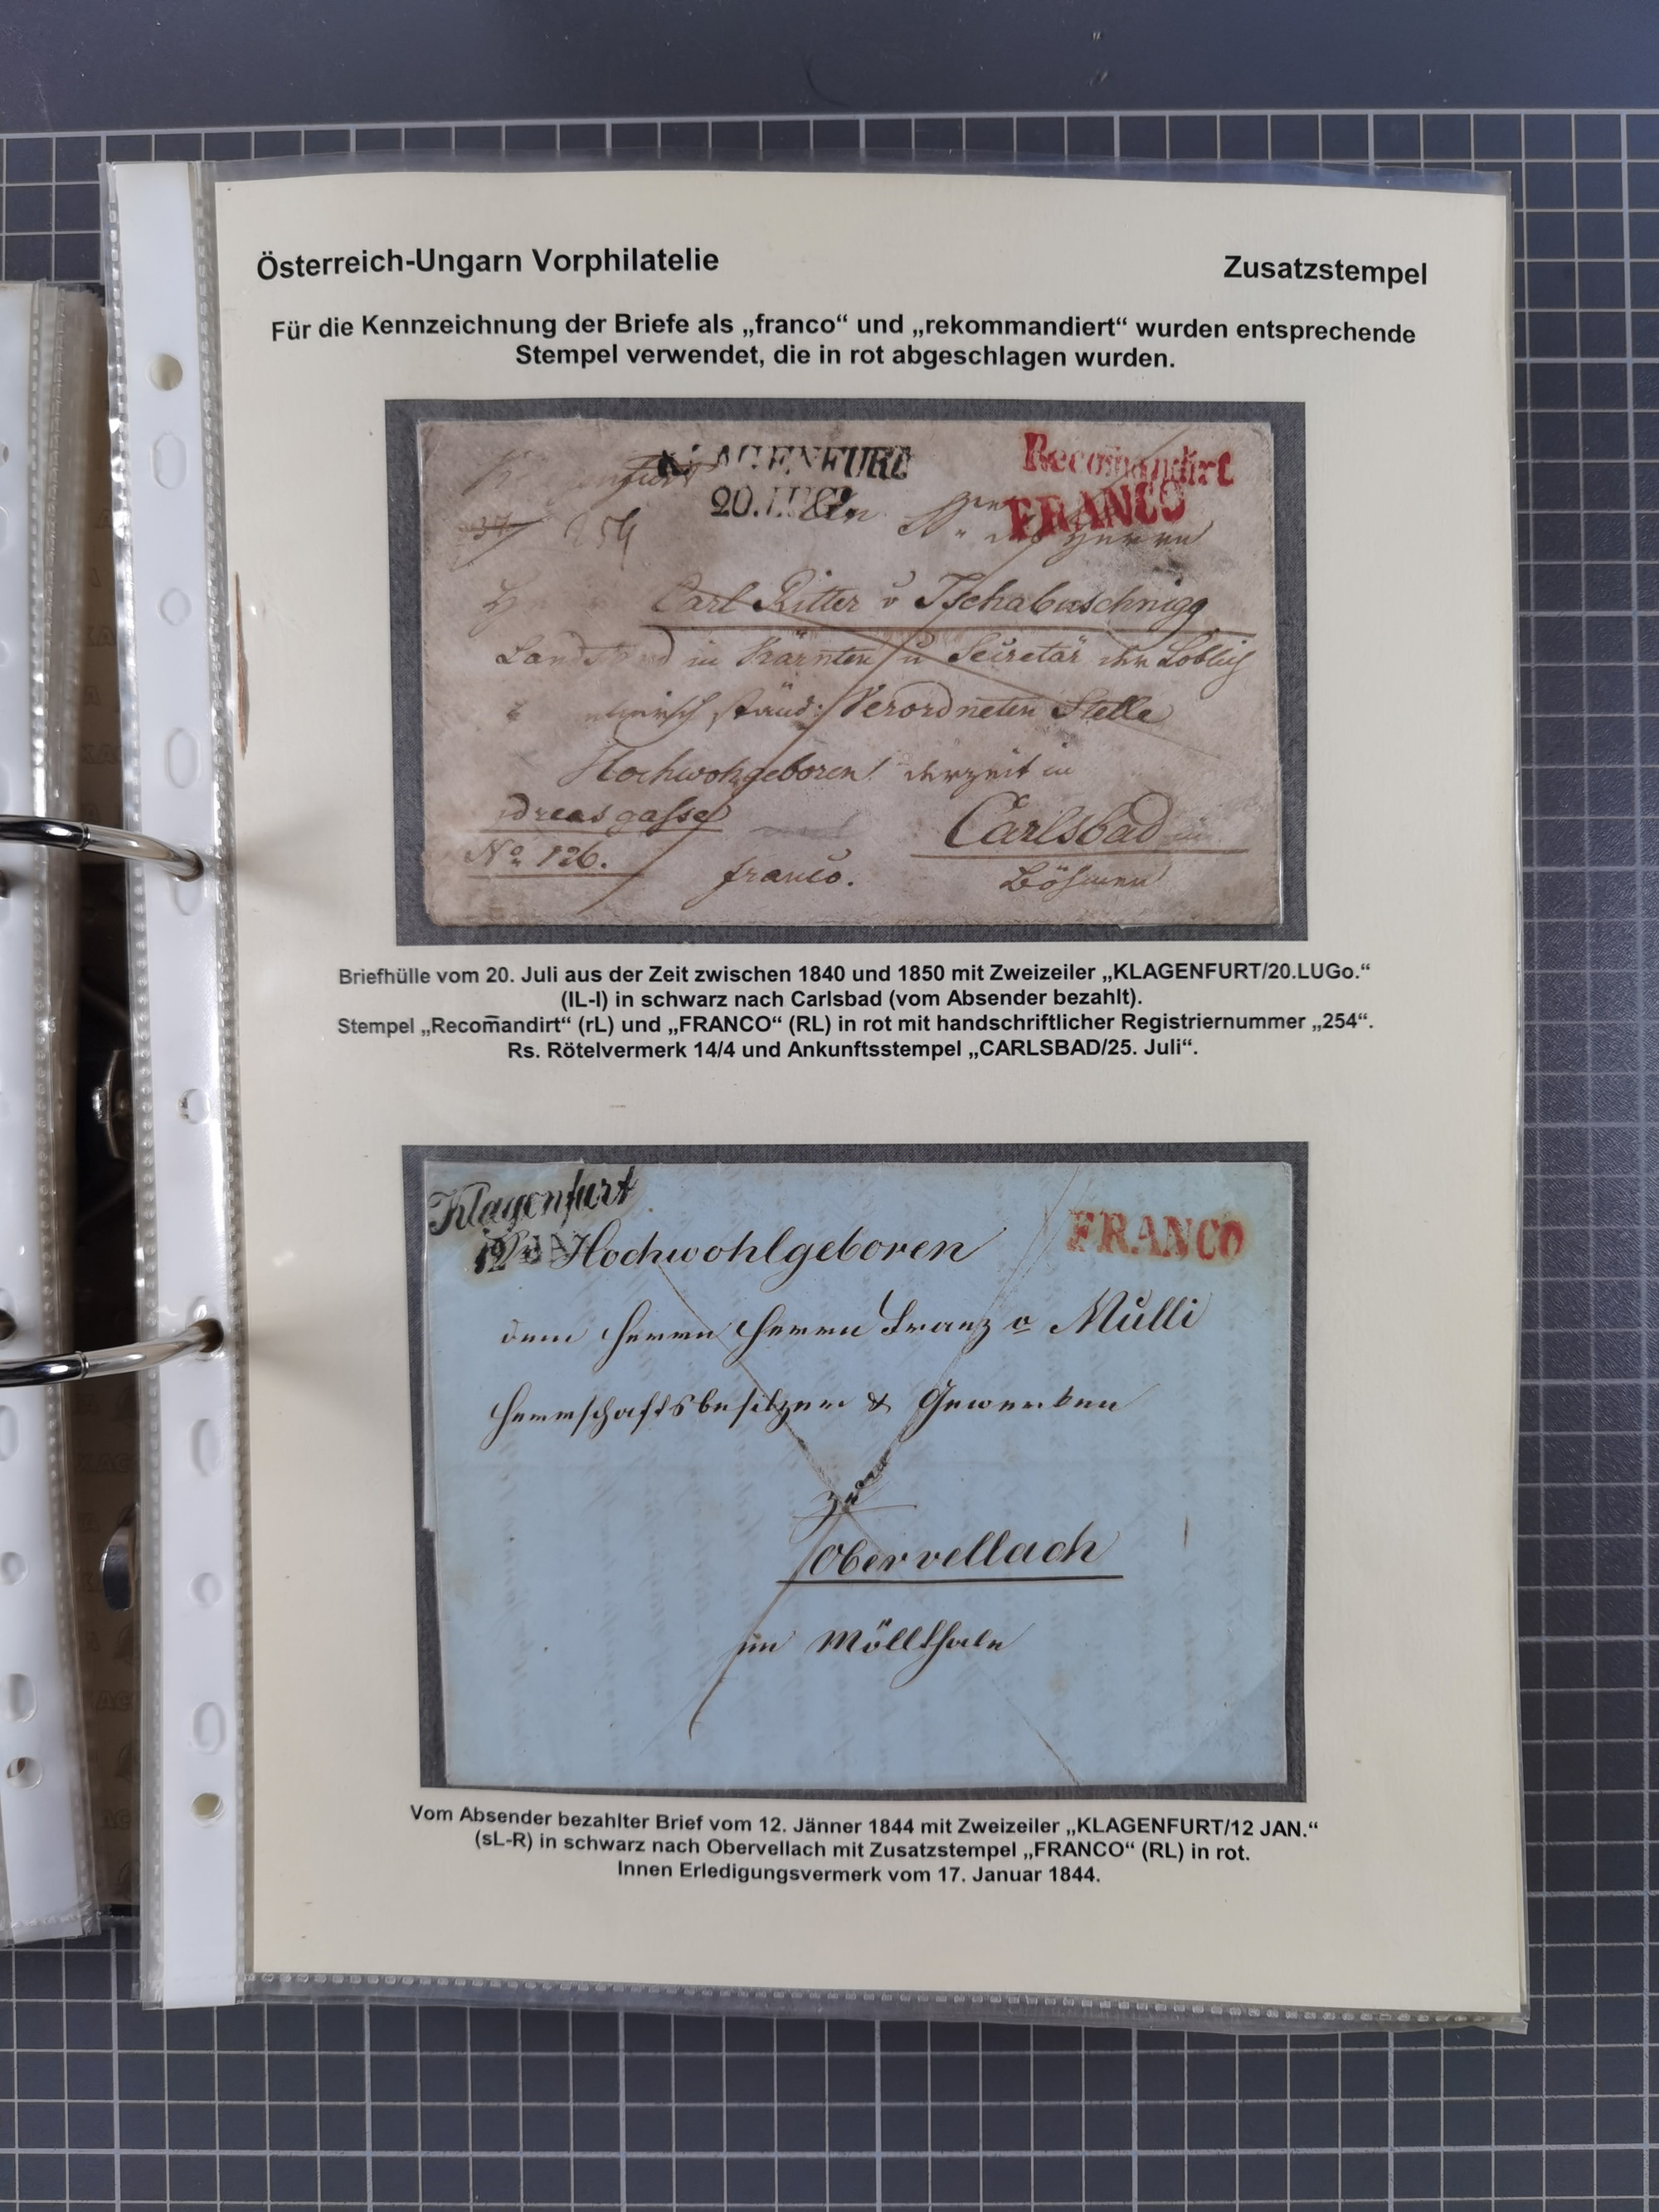 Österreich-Ungarn Vorphilatelie Zusatzstempel
Für die Kennzeichnung der Briefe als „franco“ und „rekommandiert“ wurden entsprechende
Stempel verwendet, die in rot abgeschlagen wurden.
KLAGENFURT
20.
Recom̄andirt
FRANCO
254
Carl Ritter v Tschabuschnigg
Landstand in Kärnten u Secretär der Löblich
ständ: Verordneten Stelle
Hochwohlgeboren derzeit in
No 126.
franco.
Carlsbad in
Böhmen
Briefhülle vom 20. Juli aus der Zeit zwischen 1840 und 1850 mit Zweizeiler „KLAGENFURT/20.LUGo.“
(IL-I) in schwarz nach Carlsbad (vom Absender bezahlt).
Stempel „Recom̄andirt“ (rL) und „FRANCO“ (RL) in rot mit handschriftlicher Registriernummer „254“.
Rs. Rötelvermerk 14/4 und Ankunftsstempel „CARLSBAD/25. Juli“.
Klagenfurt
12 JAN
FRANCO
Hochwohlgeboren
dem Herrn Herrn Franz v Mulli
Herrschaftsbesitzer & Gewerken
zu
Obervellach
im Möllthale
Vom Absender bezahlter Brief vom 12. Jänner 1844 mit Zweizeiler „KLAGENFURT/12 JAN.“
(sL-R) in schwarz nach Obervellach mit Zusatzstempel „FRANCO“ (RL) in rot.
Innen Erledigungsvermerk vom 17. Januar 1844.